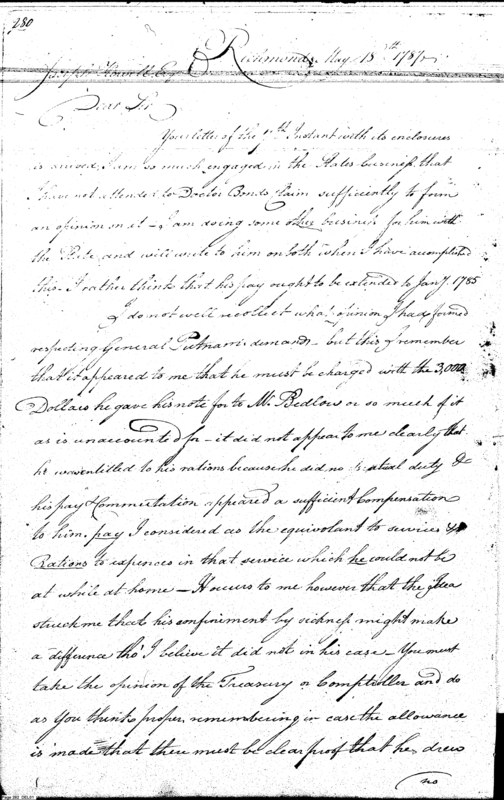 280
Richmond May 15th 1787
Joseph Howell Esq
Dear Sir
Your letter of the 7th Instant with its enclosures
is arived I am so much engaged in the States business that
I have not attended to Doctor Bonds Claim sufficiently to form
an opinion on it - I am doing some other business for him with
the State and will write to him on both when I have accomplished
this. I rather think that his pay ought to be extended to Jany. 1785
I do not well recollect what opinion I had formed
respecting General Putnam's demands - but this I remember
that it appeared to me that he must be charged with the 3,000
Dollars he gave his note for to Mr. Bedlow or so much of it
as is unaccounted for - it did not appear to me clearly that
he was entitled to his rations because he did no actual duty &c
his pay & Commutation appeared a sufficient Compensation
to him. pay I considered as the equivolant to services &
Rations to expences in that service which he could not be
at while at home - It occurs to me however that the Idea
struck me that his confinement by sickness might make
a difference tho' I believe it did not in his case - You must
take the opinion of the Treasury or Comptroller and do
as You think proper, remembering in case the allowance
is made that there must be clear proof that he drew
no